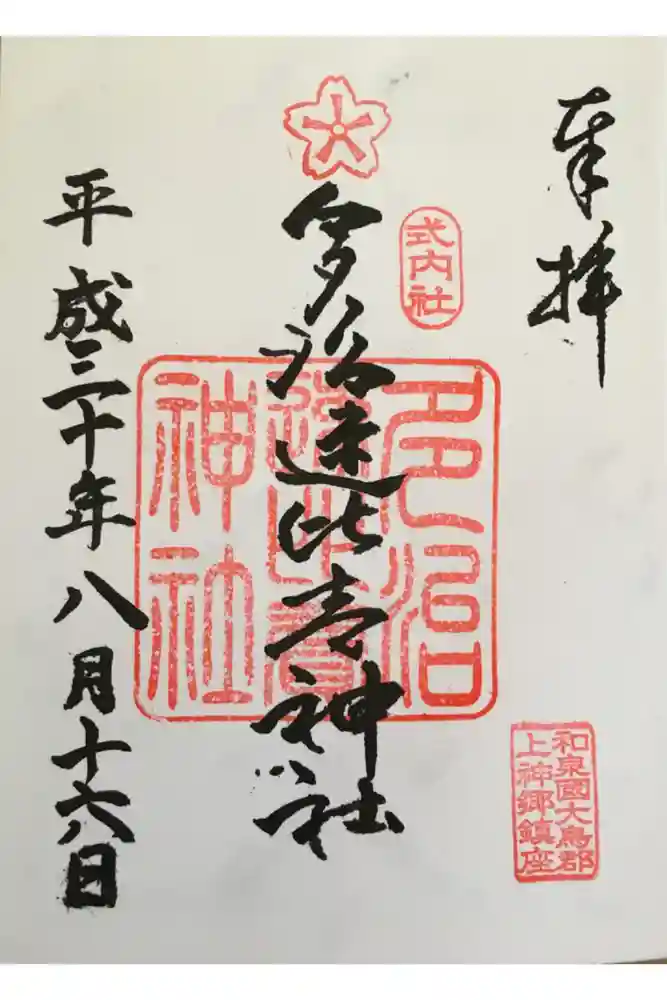 奉拝
和泉國大鳥郡
上神郷鎮座
式内社
多治速比売神社
多治
速比賣
神社
平成三十年八月十六日